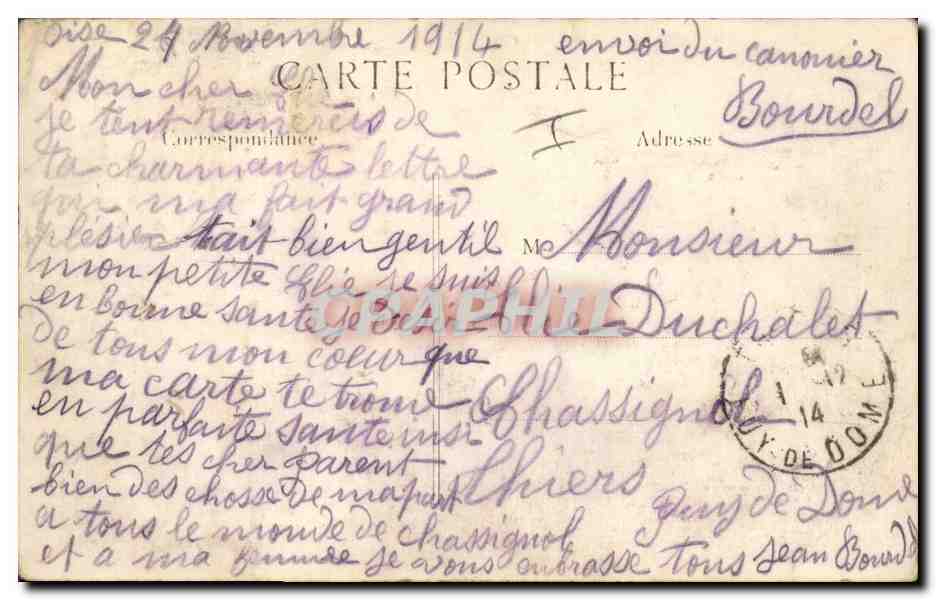 oise 24 Novembre 1914
envoi du canonier
Bourdel
CARTE POSTALE
Correspondance
Adresse
Mon cher
je tent remercis de
ta charmante lettre
qui ma fait grand
plésier tait bien gentil
mon petite Elie je suis
en bonne sante je
de tous mon coeur que
ma carte te trouve
en parfaite sante insi
que tes cher parent
bien des chosse de ma part
a tous le monde de chassignol
et a ma femme je vous enbrasse tous Jean Bourdel
M Monsieur
Elie Duchalet
Chassignol
Thiers
Puy de Dome
1 -12
14
PUY-DE-DOME
CPAPHIL